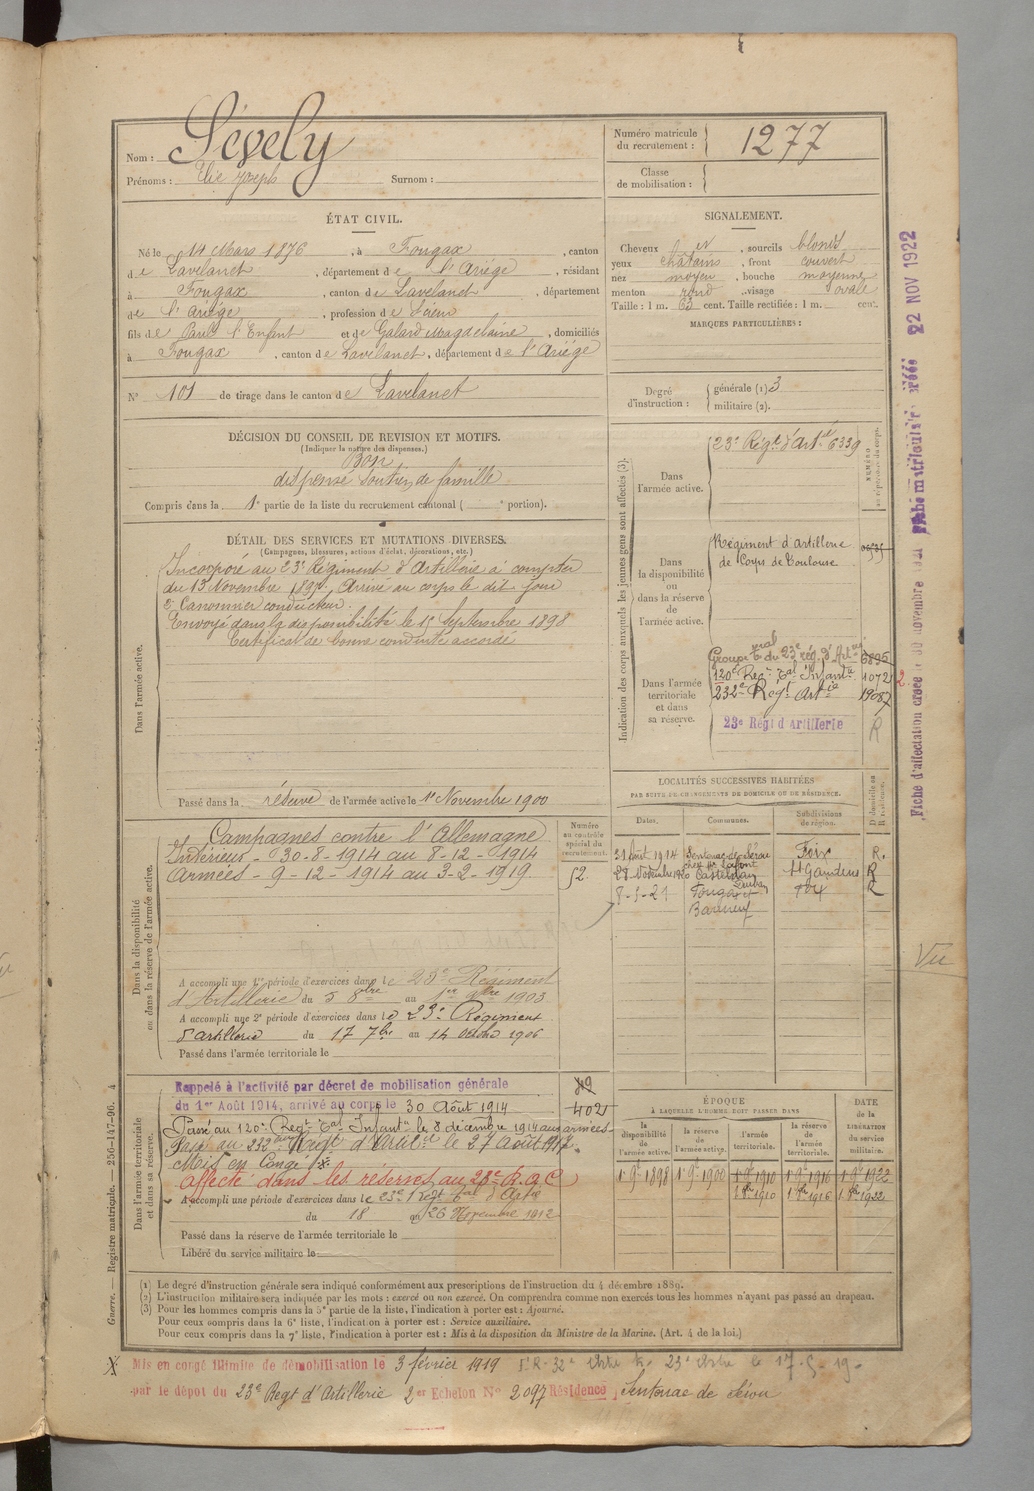 Nom : Sévely
Prénoms : Elie Joseph Surnom :
Numéro matricule du recrutement : 1277
Classe de mobilisation :
ÉTAT CIVIL.
Né le 14 Mars 1876, à Fougax, canton
de Lavelanet, département de l'Ariége, résidant
à Fougax, canton de Lavelanet, département
de l'Ariége, profession de
fils de Paul l'Enfant et de Galard Magdelaine, domiciliés
à Fougax, canton de Lavelanet, département de l'Ariége
N° 101 de tirage dans le canton de Lavelanet
SIGNALEMENT.
Cheveux, sourcils blonds
yeux châtains, front couvert
nez moyen, bouche moyenne
menton rond, visage ovale
Taille : 1 m. 63 cent. Taille rectifiée : 1 m. cent.
MARQUES PARTICULIÈRES :
Degré d'instruction : générale (1) 3
militaire (2).
DÉCISION DU CONSEIL DE REVISION ET MOTIFS.
(Indiquer la nature des dispenses.)
Bon
dispensé soutien de famille
Compris dans la 1e partie de la liste du recrutement cantonal ( e portion).
DÉTAIL DES SERVICES ET MUTATIONS DIVERSES.
(Campagnes, blessures, actions d'éclat, décorations, etc.)
Dans l'armée active.
Incorporé au 23e Régiment d'Artillerie à compter
du 13 Novembre 1897, Arrivé au corps le dit jour
2e Canonnier conducteur.
Envoyé dans la disponibilité le 1er Septembre 1898
Certificat de bonne conduite accordé
Passé dans la réserve de l'armée active le 1er Novembre 1900
Indication des corps auxquels les jeunes gens sont affectés (3).
NUMÉRO au répertoire du corps.
Dans l'armée active.
23e Régt. d'Art.ie 6339
Dans la disponibilité ou dans la réserve de l'armée active.
Régiment d'Artillerie
de Corps de Toulouse
Dans l'armée territoriale et dans sa réserve.
Groupe tal du 23e rég. d'Art.ie 6896
120e Regt Tal Infant.ie 1072
232e Regt Art.ie 19087
23e Régt d'Artillerie R
Dans la disponibilité ou dans la réserve de l'armée active.
Campagnes contre l'Allemagne
Intérieur - 30-8-1914 au 8-12-1914
Armées - 9-12-1914 au 3-2-1919
Numéro au contrôle spécial du recrutement.
52
A accompli une 1re période d'exercices dans le 23e Régiment
d'Artillerie du 5 8bre au 1er 9bre 1903
A accompli une 2e période d'exercices dans le 23e Régiment
d'artillerie du 17 7bre au 14 octobre 1906
Passé dans l'armée territoriale le
LOCALITÉS SUCCESSIVES HABITÉES
PAR SUITE DE CHANGEMENTS DE DOMICILE OU DE RÉSIDENCE.
Dates. Communes. Subdivisions de région. D domicile ou R résidence.
21 Aout 1914 Sentenac de Sérou Foix R.
28 Novembre 1920 St Gaudens R
8-5-21 Fougax et Barrineuf Foix R
Dans l'armée territoriale et dans sa réserve.
Rappelé à l'activité par décret de mobilisation générale
du 1er Août 1914, arrivé au corps le 30 Août 1914
402
Passé au 120e Regt Tal Infant.ie le 8 décembre 1914 aux armées
Passé au 232eme Régt d'Artil.ie le 27 Août 1917.
Mis en Congé
Affecté dans les réserves au 23e R.A.C
A accompli une période d'exercices dans le 23e Regt Tal d'Art.ie
du 18 au 26 Novembre 1912
Passé dans la réserve de l'armée territoriale le
Libéré du service militaire le
ÉPOQUE
À LAQUELLE L'HOMME DOIT PASSER DANS
la disponibilité de l'armée active. la réserve de l'armée active. l'armée territoriale. la réserve de l'armée territoriale. DATE de la LIBÉRATION du service militaire.
1er 9bre 1898 1er 9bre 1900 1er 9bre 1910 1er 9bre 1916 1er 9bre 1922
1er 8bre 1910 1er 8bre 1916 1er 8bre 1922
(1) Le degré d'instruction générale sera indiqué conformément aux prescriptions de l'instruction du 4 décembre 1889.
(2) L'instruction militaire sera indiquée par les mots : exercé ou non exercé. On comprendra comme non exercés tous les hommes n'ayant pas passé au drapeau.
(3) Pour les hommes compris dans la 5e partie de la liste, l'indication à porter est : Ajourné.
Pour ceux compris dans la 6e liste, l'indication à porter est : Service auxiliaire.
Pour ceux compris dans la 7e liste, l'indication à porter est : Mis à la disposition du Ministre de la Marine. (Art. 4 de la loi.)
Mis en congé illimité de démobilisation le 3 février 1919
par le dépôt du 23e Regt d'Artillerie 2er Echelon N° 2097 Résidence Sentenac de Sérou
Guerre. — Registre matricule. — 256-147-96. 4
22 NOV 1922
Vu